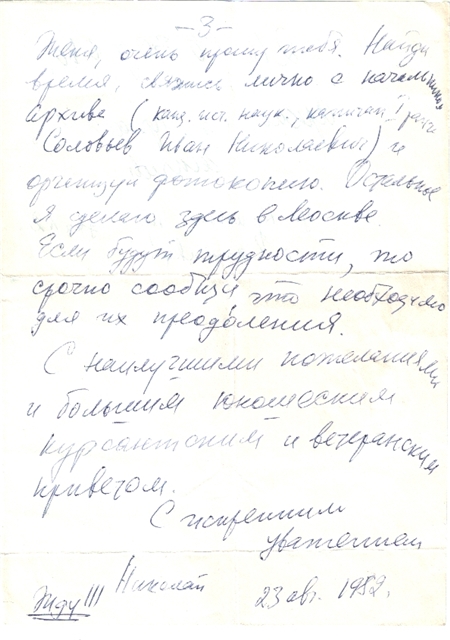 -3-
Женя, очень прошу тебя. Найди
время, свяжись лично с начальником
архива (канд. ист. наук, капитан I ранга
Соловьев Иван Николаевич) и
организуй фотокопию. Остальное
я сделаю здесь в Москве.
Если будут трудности, то
срочно сообщи что необходимо
для их преодоления.
С наилучшими пожеланиями
и большим юношеским
курсантским и ветеранским
приветом.
С искренним
уважением
Николай
Жду!!! 23 авг. 1982.